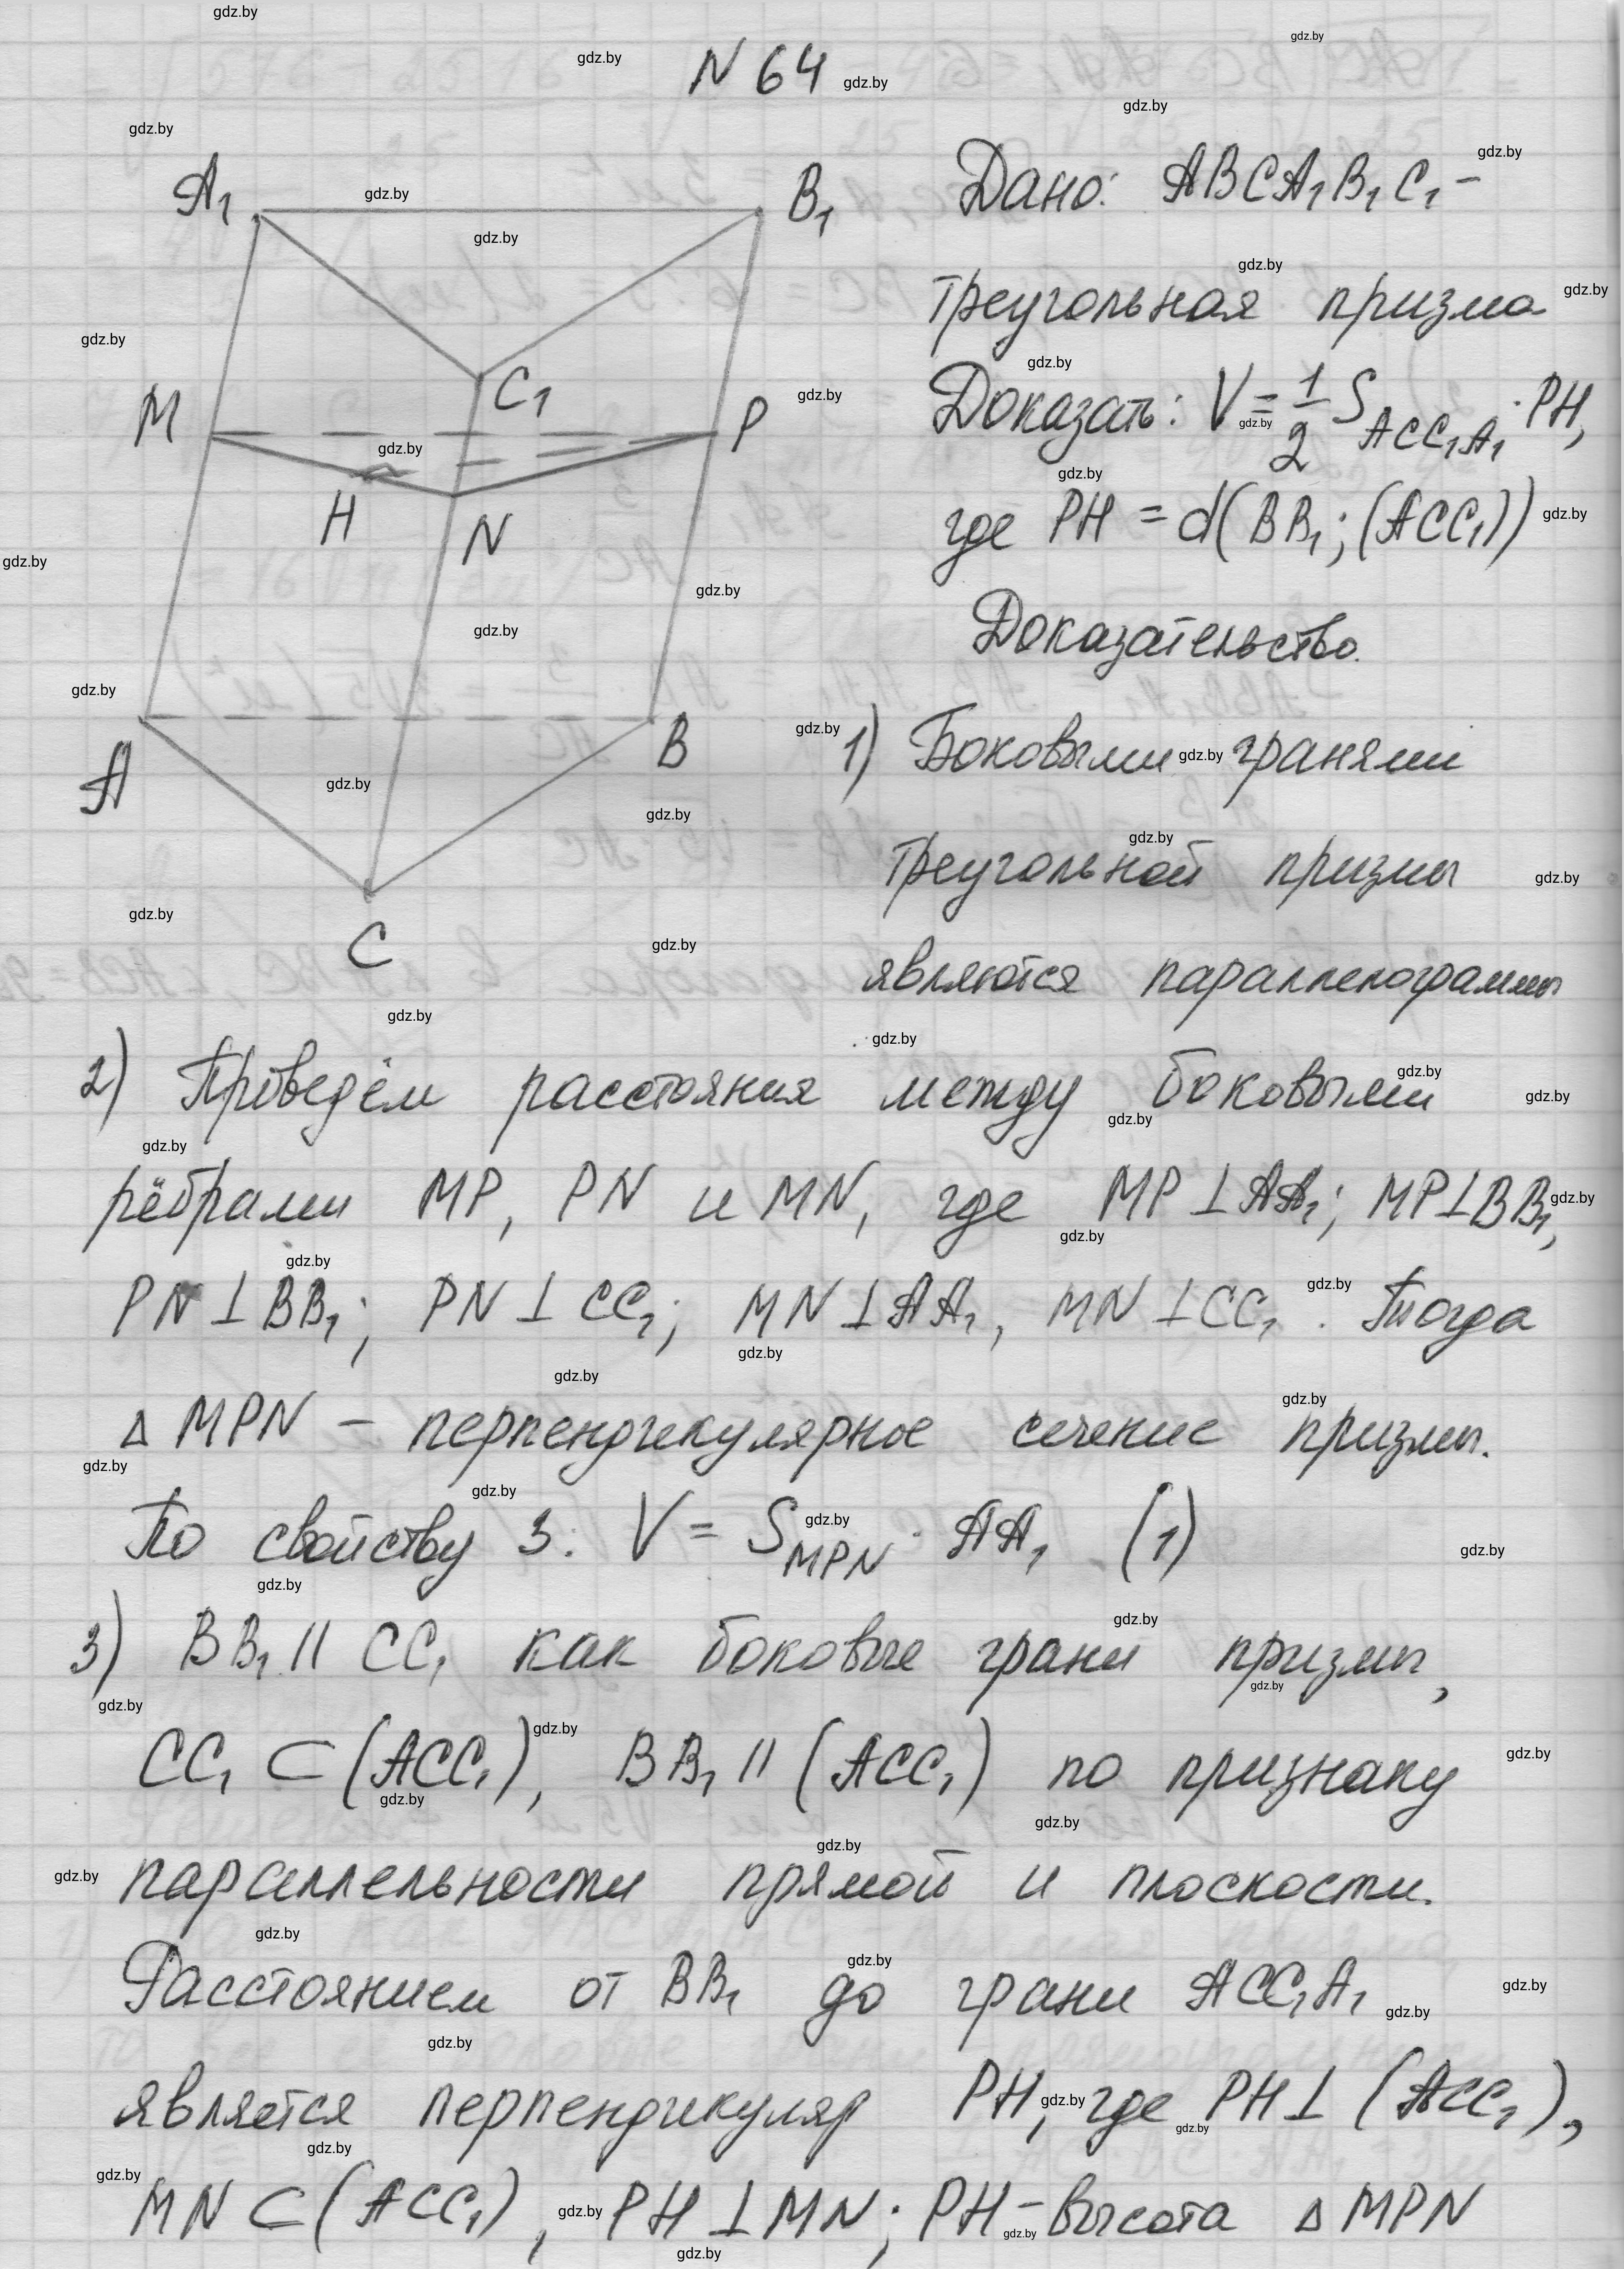 N 64
A₁
B₁
C₁
M
P
H
N
A
B
C
Дано: ABCA₁B₁C₁ -
треугольная призма
Доказать: V = 1/2 S_ACC₁A₁ · PH,
где PH = d(BB₁; (ACC₁))
Доказательство.
1) Боковыми гранями
треугольной призмы
являются параллелограммы
2) Проведём расстояния между боковыми
рёбрами MP, PN и MN, где MP ⊥ AA₁; MP ⊥ BB₁,
PN ⊥ BB₁; PN ⊥ CC₁; MN ⊥ AA₁, MN ⊥ CC₁. Тогда
△ MPN – перпендикулярное сечение призмы.
По свойству 3: V = S_MPN · AA₁ (1)
3) BB₁ || CC₁ как боковые грани призмы,
CC₁ ⊂ (ACC₁), BB₁ || (ACC₁) по признаку
параллельности прямой и плоскости.
Расстоянием от BB₁ до грани ACC₁A₁
является перпендикуляр PH, где PH ⊥ (ACC₁),
MN ⊂ (ACC₁), PH ⊥ MN; PH - высота △ MPN
gdz.by